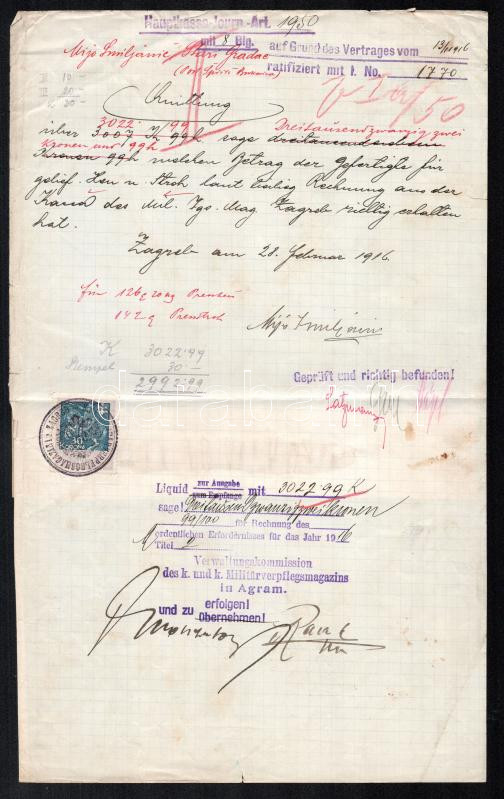 Hauptkassa-Journ.-Art. 1950
mit 8 Blg.
auf Grund des Vertrages vom 13/II 1916
ratifiziert mit I. No. 1770
Mijo Smiljanić Stari Gradac
Quittung
3022 99 Dreitausendzwanzig zwei
über 3007 K 99h sage dreitausendsieben
Kronen und 99h
Kronen 99h welchen Betrag der Gefertigte für
gelief. Heu u. Stroh laut Rechnung aus der
Kassa des Mil. Vgs. Mag. Zagreb richtig erhalten
hat.
Zagreb am 28. Februar 1916.
für
Mijo Smiljanić
K 3022·99
Stempel 30·—
2992·99
Geprüft und richtig befunden!
Liquid zur Ausgabe
zum Empfange mit 3022·99 K
sage! Dreitausendzwanzigzwei Kronen
99/100 für Rechnung des
ordentlichen Erfordernisses für das Jahr 1916
Titel 2
Verwaltungskommission
des k. und k. Militärverpflegsmagazins
in Agram.
und zu erfolgen!
übernehmen!